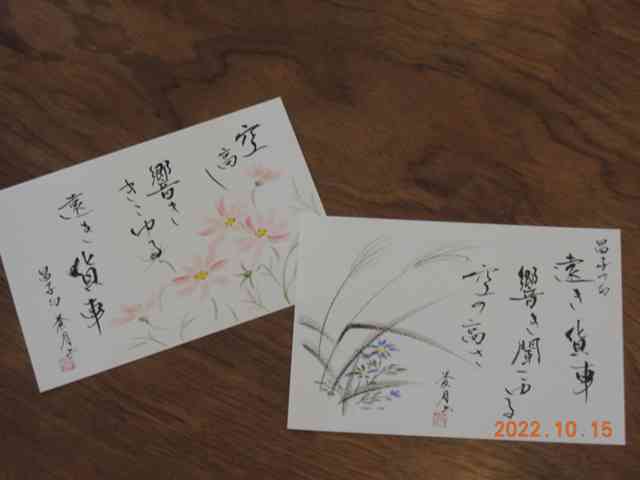 空
高し
響き
きこゆる
遠き貨車
昌子句
遠き貨車
響き聞こゆる
空の高さ
2022.10.15